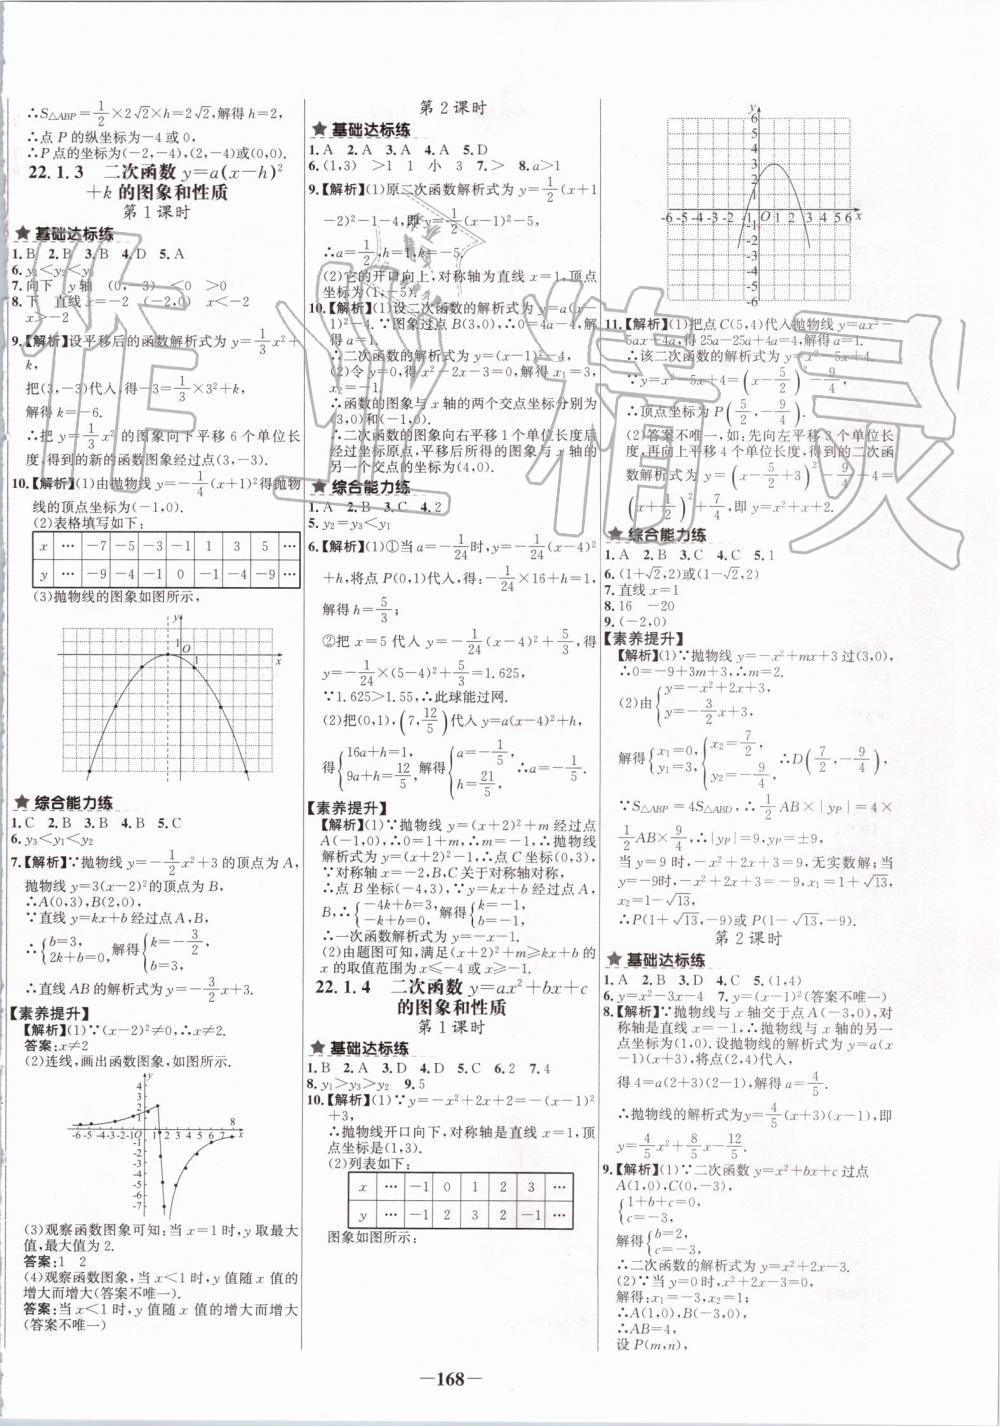 ∴S△ABP=1/2×2√2×h=2√2,解得h=2,
∴点P的纵坐标为-4或0,
∴P点的坐标为(-2,-4),(2,-4)或(0,0).
22.1.3 二次函数y=a(x-h)²
+k的图象和性质
第1课时
★基础达标练
1.B 2.B 3.B 4.D 5.A
6.y₁<y₂<y₃
7.向下 y轴 (0,-3) <0 >0
8.下 直线x=-2 (-2,0) x<-2
x>-2
9.【解析】设平移后的函数解析式为y=-1/3x²+
k,
把(3,-3)代入,得-3=-1/3×3²+k,
解得k=-6.
∴把y=-1/3x²的图象向下平移6个单位长
度,得到的新的函数图象经过点(3,-3).
10.【解析】(1)由抛物线y=-1/4(x+1)²得抛物
线的顶点坐标为(-1,0).
(2)表格填写如下:
x … -7 -5 -3 -1 1 3 5 …
y … -9 -4 -1 0 -1 -4 -9 …
(3)抛物线的图象如图所示,
y
1
O 1 x
★综合能力练
1.C 2.B 3.B 4.B 5.C
6.y₃<y₁<y₂
7.【解析】∵抛物线y=-1/2x²+3的顶点为A,
抛物线y=3(x-2)²的顶点为B,
∴A(0,3),B(2,0),
∵直线y=kx+b经过点A,B,
∴{b=3, 2k+b=0, 解得{k=-3/2, b=3,
∴直线AB的解析式为y=-3/2x+3.
【素养提升】
【解析】(1)∵(x-2)²≠0,∴x≠2.
答案:x≠2
(2)连线,画出函数图象,如图所示.
y
4
3
2
1
-6 -5 -4 -3 -2 -1 O 1 2 3 4 5 6 7 8 x
-1
-2
-3
-4
-5
-6
-7
(3)观察函数图象可知:当x=1时,y取最大
值,最大值为2.
答案:1 2
(4)观察函数图象,当x<1时,y值随x值的
增大而增大(答案不唯一).
答案:当x<1时,y值随x值的增大而增大
(答案不唯一)
第2课时
★基础达标练
1.A 2.A 3.A 4.A 5.D
6.(1,3) >1 1 小 3 7.> 8.a>1
9.【解析】(1)原二次函数解析式为y=1/2(x+1
-2)²-1-4,即y=1/2(x-1)²-5,
∴a=1/2,h=1,k=-5.
(2)它的开口向上,对称轴为直线x=1,顶点
坐标为(1,-5).
10.【解析】(1)设二次函数的解析式为y=a(x-
1)²-4.∵图象过点B(3,0),∴0=4a-4,解
得a=1.
∴二次函数的解析式为y=(x-1)²-4,
(2)令y=0,得x²-2x-3=0,解得x₁=3,
x₂=-1.
∴函数的图象与x轴的两个交点坐标分别为
(3,0)和(-1,0).
∴二次函数的图象向右平移1个单位长度后
经过坐标原点,平移后所得的图象与x轴的
另一个交点的坐标为(4,0).
★综合能力练
1.A 2.B 3.C 4.2
5.y₂=y₃<y₁
6.【解析】(1)①当a=-1/24时,y=-1/24(x-4)²
+h,将点P(0,1)代入,得:-1/24×16+h=1,
解得h=5/3;
②把x=5代入y=-1/24(x-4)²+5/3,得
y=-1/24×(5-4)²+5/3=1.625,
∵1.625>1.55,∴此球能过网.
(2)把(0,1),(7,12/5)代入y=a(x-4)²+h,
得{16a+h=1, 9a+h=12/5, 解得{a=-1/5, h=21/5, ∴a=-1/5.
【素养提升】
【解析】(1)∵抛物线y=(x+2)²+m经过点
A(-1,0),∴0=1+m,∴m=-1,∴抛物线
解析式为y=(x+2)²-1,∴点C坐标(0,3),
∵对称轴x=-2,B,C关于对称轴对称,
∴点B坐标(-4,3),∵y=kx+b经过点A,
B,∴{-4k+b=3, -k+b=0, 解得{k=-1, b=-1,
∴一次函数解析式为y=-x-1,
(2)由题图可知,满足(x+2)²+m≥kx+b的
x的取值范围为x≤-4或x≥-1.
22.1.4 二次函数y=ax²+bx+c
的图象和性质
第1课时
★基础达标练
1.B 2.A 3.D 4.D 5.C 6.2 7.4
8.y₁>y₃>y₂ 9.5
10.【解析】(1)∵y=-x²+2x+2=-(x-1)²
+3,
∴抛物线开口向下,对称轴是直线x=1,顶
点坐标是(1,3).
(2)列表如下:
x … -1 0 1 2 3 …
y … -1 2 3 2 -1 …
图象如图所示:
y
6
5
4
3
2
1
-6 -5 -4 -3 -2 -1 O 1 2 3 4 5 6 x
-1
-2
-3
-4
-5
-6
11.【解析】(1)把点C(5,4)代入抛物线y=ax²-
5ax+4a,得25a-25a+4a=4,解得a=1.
∴该二次函数的解析式为y=x²-5x+4.
∵y=x²-5x+4=(x-5/2)²-9/4,
∴顶点坐标为P(5/2,-9/4).
(2)答案不唯一,如:先向左平移3个单位长
度,再向上平移4个单位长度,得到的二次函
数解析式为y=(x-5/2+3)²-9/4+4=
(x+1/2)²+7/4,即y=x²+x+2.
★综合能力练
1.A 2.B 3.C 4.C 5.1
6.(1+√2,2)或(1-√2,2)
7.直线x=1
8.16 -20
9.(-2,0)
【素养提升】
【解析】(1)∵抛物线y=-x²+mx+3过(3,0),
∴0=-9+3m+3,∴m=2.
(2)由{y=-x²+2x+3, y=-3/2x+3,
解得{x₁=0, y₁=3, {x₂=7/2, y₂=-9/4, ∴D(7/2,-9/4),
∵S△ABP=4S△ABD,∴1/2AB×|yP|=4×
1/2AB×9/4,∴|yP|=9,yP=±9,
当y=9时,-x²+2x+3=9,无实数解;当
y=-9时,-x²+2x+3=-9,x₁=1+√13,
x₂=1-√13,
∴P(1+√13,-9)或P(1-√13,-9).
第2课时
★基础达标练
1.A 2.B 3.D 4.C 5.(1,4)
6.y=x²-3x-4 7.y=(x-1)²(答案不唯一)
8.【解析】∵抛物线与x轴交于点A(-3,0),对
称轴是直线x=-1,∴抛物线与x轴的另一
点坐标为(1,0).设抛物线的解析式为y=a(x
-1)(x+3),将点(2,4)代入,
得4=a(2+3)(2-1),解得a=4/5.
∴抛物线的解析式为y=4/5(x+3)(x-1),即
y=4/5x²+8/5x-12/5.
9.【解析】(1)∵二次函数y=x²+bx+c过点
A(1,0),C(0,-3),
{1+b+c=0, c=-3,
解得{b=2, c=-3,
∴二次函数的解析式为y=x²+2x-3.
(2)∵当y=0时,x²+2x-3=0,
解得:x₁=-3,x₂=1;
∴A(1,0),B(-3,0),
∴AB=4,
设P(m,n),
—168—
作业精灵